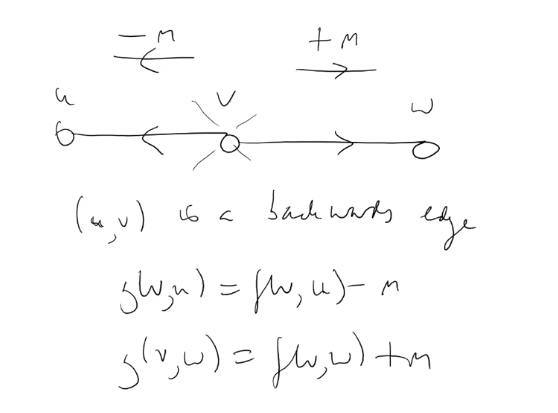 - m +m
u v w
(u,v) is a backwards edge
g(v,u) = f(v,u) - m
g(v,w) = f(v,w) + m